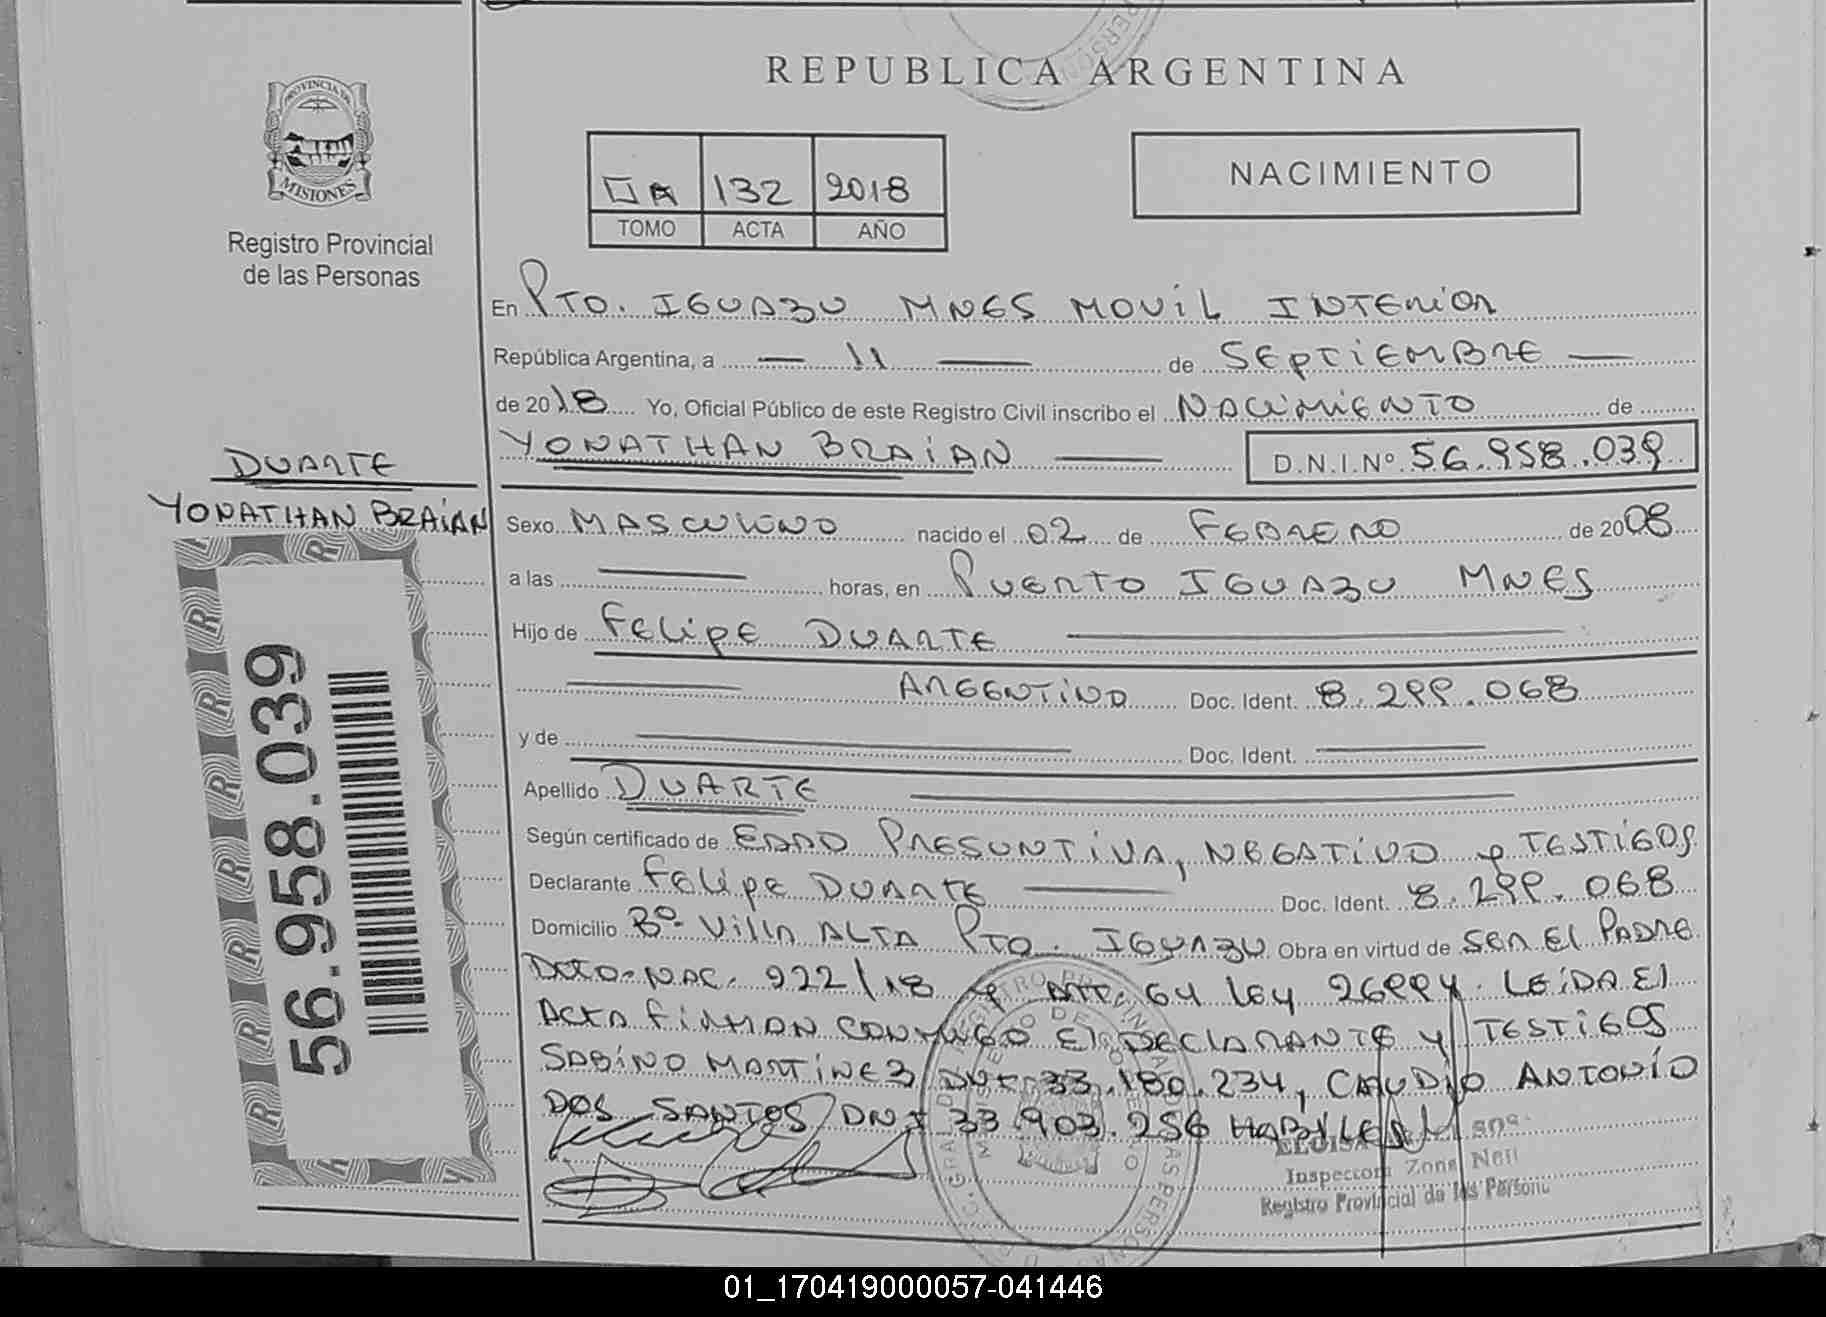 REPUBLICA ARGENTINA
PROVINCIA DE
MISIONES
Registro Provincial
de las Personas
132 2018
TOMO ACTA AÑO
NACIMIENTO
En PTO. IGUAZU MNES MOVIL INTERIOR
República Argentina, a — 11 — de SEPTIEMBRE —
de 2018 Yo, Oficial Público de este Registro Civil inscribo el NACIMIENTO de
YONATHAN BRAIAN — D.N.I.Nº 56.958.039
DUARTE
YONATHAN BRAIAN
56.958.039
Sexo MASCULINO nacido el 02 de FEBRERO de 2008
a las — horas, en PUERTO IGUAZU MNES
Hijo de FELIPE DUARTE —
— ARGENTINO Doc. Ident. 8.299.068
y de — Doc. Ident. —
Apellido DUARTE —
Según certificado de EDAD PRESUNTIVA, NEGATIVO y TESTIGOS
Declarante FELIPE DUARTE — Doc. Ident. 8.299.068
Domicilio Bº VILLA ALTA PTO. IGUAZU Obra en virtud de SER EL PADRE
DCTO. NAC. 922/18 y ART. 64 LEY 26994. LEIDA EL
ACTA FIRMAN CONMIGO EL DECLARANTE y TESTIGOS
SABINO MARTINEZ DNI 33.180.234, CLAUDIO ANTONIO
DOS SANTOS DNI 33.903.256 HABILES
Inspectora Zona
Registro Provincial de las
01_170419000057-041446